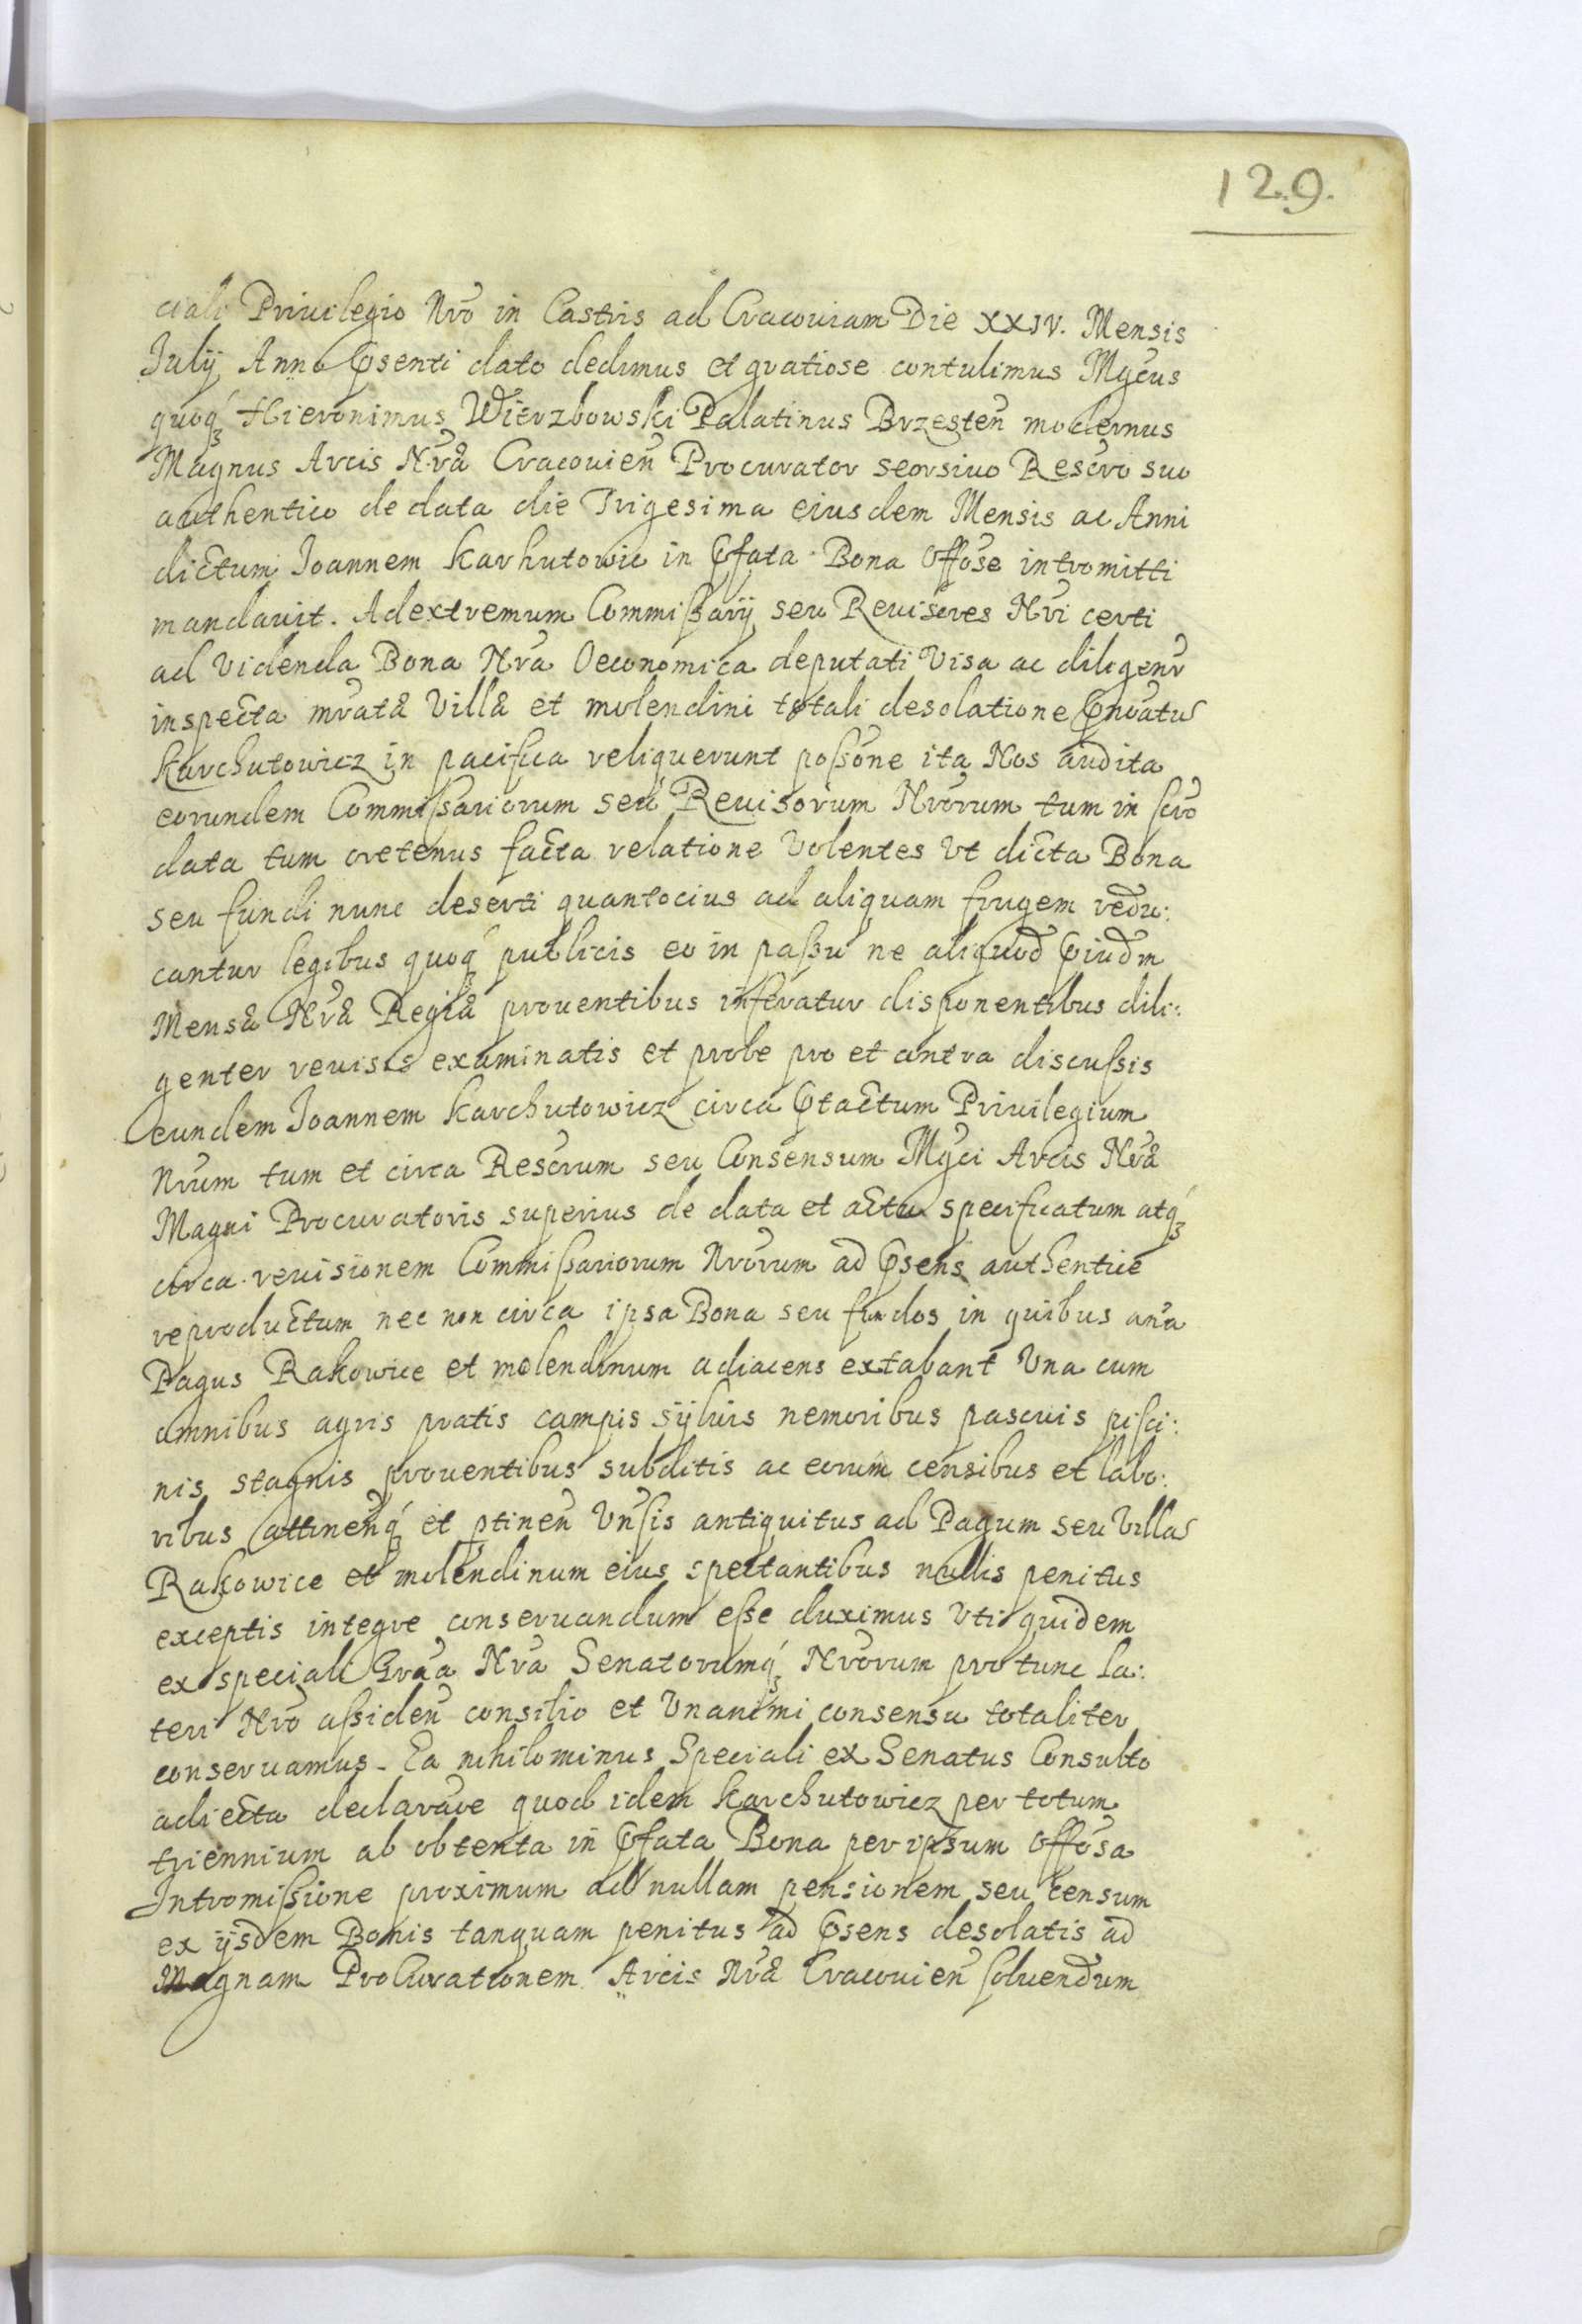 129.
ciali Privilegio Nro in Castris ad Cracoviam Die XXIV. Mensis
July Anno Psenti dato dedimus et gratiose contulimus Mgcus
quoq Hieronimus Wierzbowski Palatinus Brzesten modernus
Magnus Arcis Nræ Cracovien Procurator seorsivo Rescro suo
authentico de data die Trigesima eiusdem Mensis ac Anni
dictum Joannem Karhutowic in Pfata Bona Offose intromitti
mandavit. Ad extremum Commissarij seu Revisores Nri certi
ad Videnda Bona Nra Oeconomica deputati Visa ac diligenr
inspecta mratæ Villæ et molendini totali desolatione Pnoatus
Karchutowicz in pacifica reliquerunt possone ita Nos audita
eorundem Commissariorum seu Revisorum Nrorum tum in scro
data tum oretenus facta relatione Volentes Vt dicta Bona
seu fundi nunc deserti quantocius ad aliquam frugem redu:
cantur legibus quoq publicis eo in passu ne aliquod Piudm
Mensæ Nræ Regiæ proventibus inferatur disponentibus dili:
genter revisis examinatis et probe pro et contra discussis
eundem Joannem Karchutowicz circa Ptactum Privilegium
Nrum tum et circa Rescrum seu Consensum Mgci Arcis Nræ
Magni Procuratoris superius de data et actu specificatum atq
circa revisionem Commissariorum Nrorum ad Psens authentice
reproductum nec non circa ipsa Bona seu fundos in quibus ana
Pagus Rakowice et molendinum adiacens extabant Una cum
omnibus agris pratis campis sylvis nemoribus pascuis pisci:
nis stagnis proventibus subditis ac eorum censibus et labo:
ribus attinenq et ptinen Vnsis antiquitus ad Pagum seu Villa
Rakowice et molendinum eius spectantibus nullis penitus
exceptis integre conservandum esse duximus Vti quidem
ex speciali Graa Nra Senatorumq Nrorum pro tunc la:
teri Nro assiden consilio et Unanimi consensu totaliter
conservamus. Ea nihilominus Speciali ex Senatus Consulto
adiecta declarare quod idem Karchutowicz per totum
triennium ab obtenta in Pfata Bona per ipsum Offosa
Intromissione proximum ad nullam pensionem seu censum
ex ijsdem Bonis tanquam penitus ad Psens desolatis ad
Magnam Procurationem Arcis Nræ Cracovien solvendum